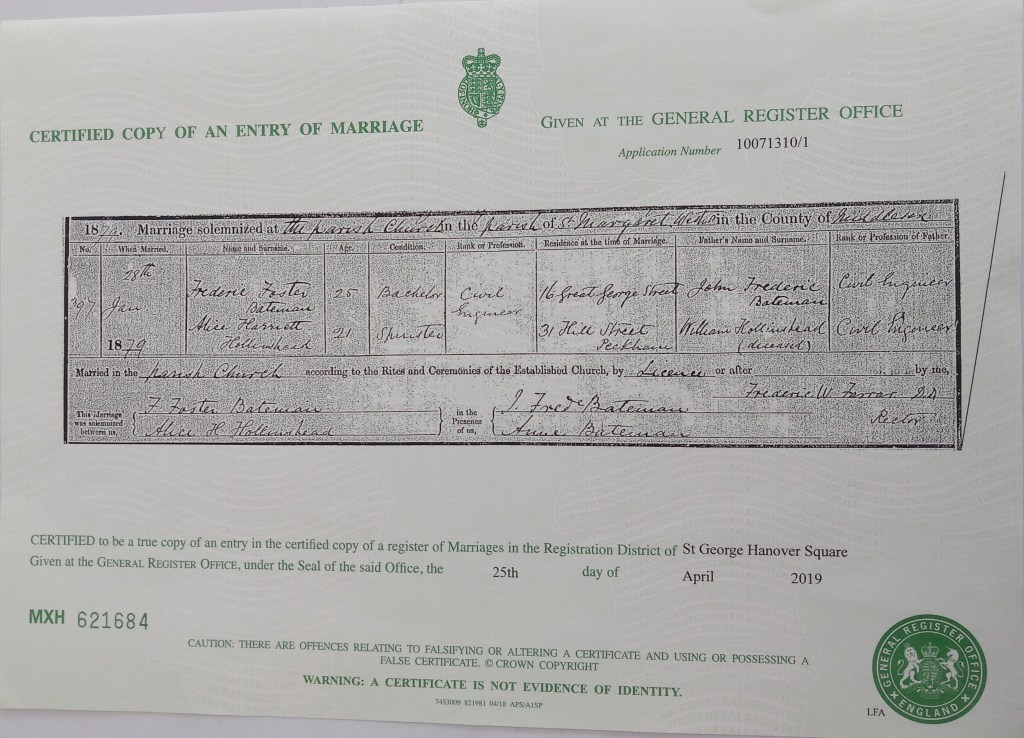 CERTIFIED COPY OF AN ENTRY OF MARRIAGE
GIVEN AT THE GENERAL REGISTER OFFICE
Application Number 10071310/1
1879. Marriage solemnized at the parish Church in the parish of St. Margaret Westr in the County of Middlesex
No. When Married. Name and Surname. Age. Condition. Rank or Profession. Residence at the time of Marriage. Father's Name and Surname. Rank or Profession of Father.
397 28th Jan 1879
Frederic Foster Bateman 25 Bachelor Civil Engineer 16 Great George Street John Frederic Bateman Civil Engineer
Alice Harriett Hollinshead 21 Spinster 31 Hill Street Peckham William Hollinshead (deceased) Civil Engineer
Married in the parish Church according to the Rites and Ceremonies of the Established Church, by Licence or after by me,
Frederic W. Farrar D.D.
Rector
This Marriage was solemnized between us,
F. Foster Bateman
Alice H. Hollinshead
in the Presence of us,
J. Fredc Bateman
Anne Bateman
CERTIFIED to be a true copy of an entry in the certified copy of a register of Marriages in the Registration District of St George Hanover Square
Given at the GENERAL REGISTER OFFICE, under the Seal of the said Office, the 25th day of April 2019
MXH 621684
CAUTION: THERE ARE OFFENCES RELATING TO FALSIFYING OR ALTERING A CERTIFICATE AND USING OR POSSESSING A
FALSE CERTIFICATE. © CROWN COPYRIGHT
WARNING: A CERTIFICATE IS NOT EVIDENCE OF IDENTITY.
7453009 821981 04/18 APS/A1SP
GENERAL REGISTER OFFICE
ENGLAND
LFA